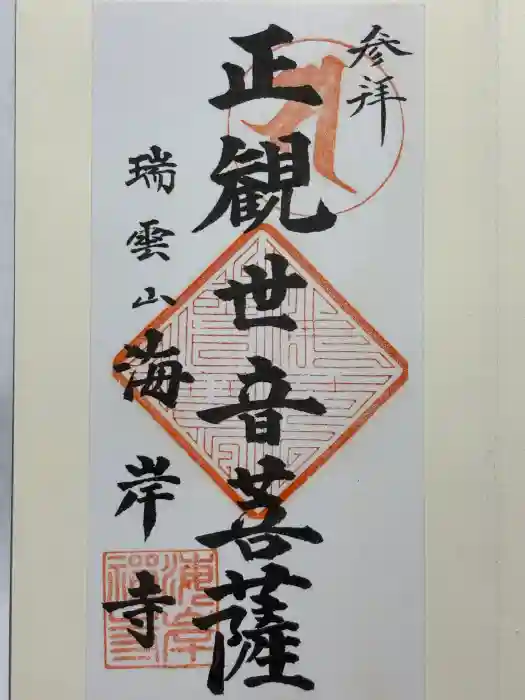 参拝
正観世音菩薩
瑞雲山海岸寺
海岸禅寺